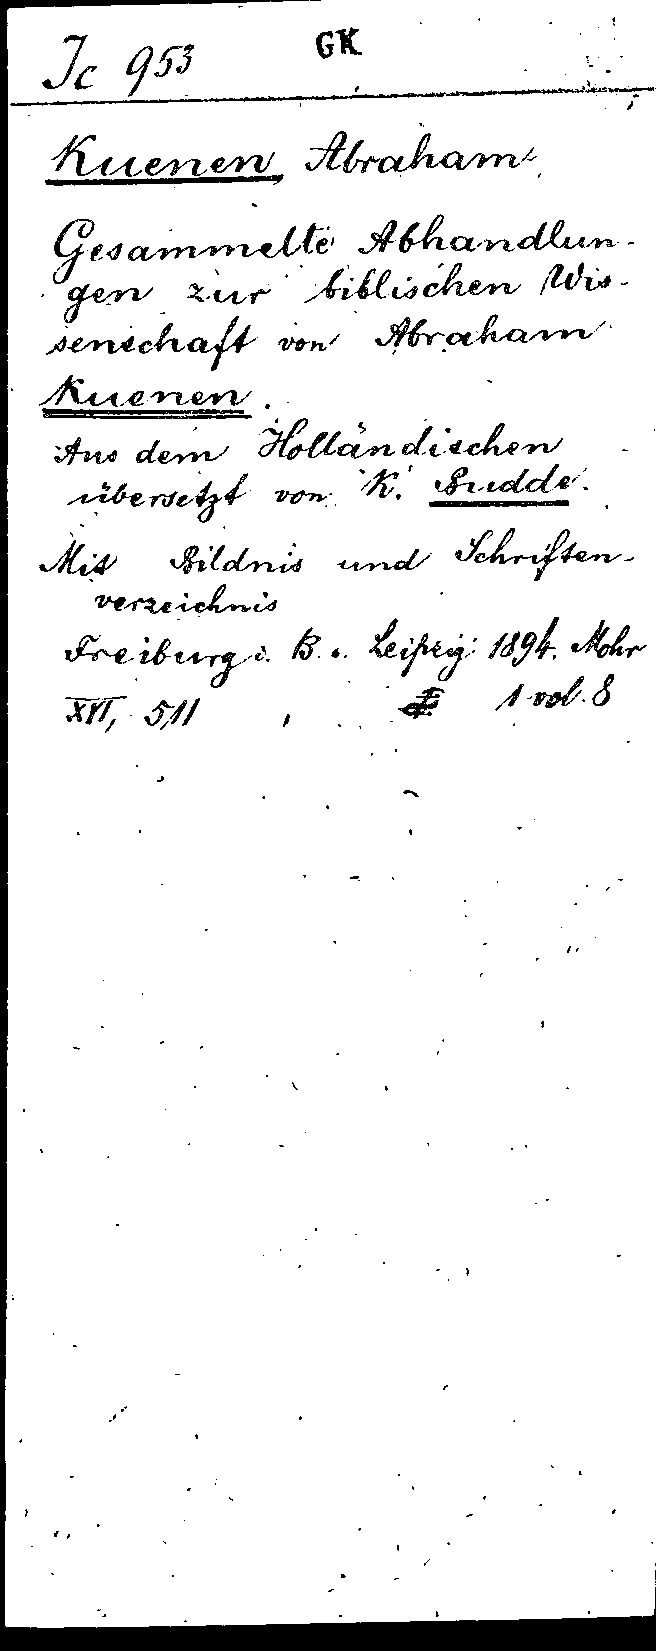 Jc 953
GK
Kuenen, Abraham
Gesammelte Abhandlun-
gen zur biblischen Wis-
senschaft von Abraham
Kuenen.
Aus dem Holländischen
übersetzt von K. Budde.
Mit Bildnis und Schriften-
verzeichnis
Freiburg i. B. u. Leipzig 1894. Mohr
XVI, 511
1 vol. 8